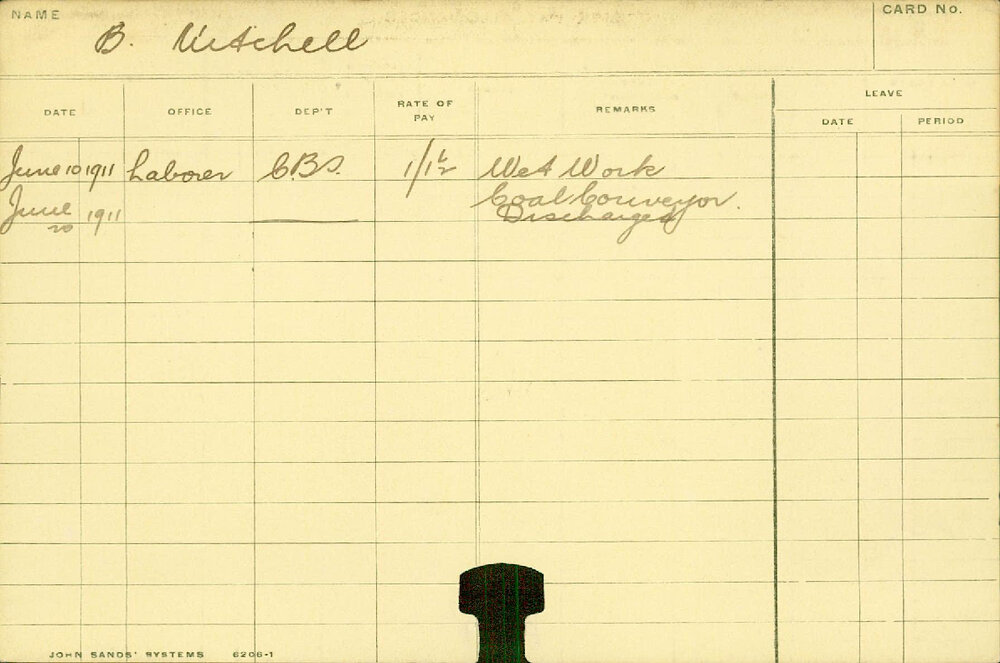 NAME
B. Mitchell
CARD No.
DATE OFFICE DEP'T RATE OF PAY REMARKS LEAVE
DATE PERIOD
June 10 1911 Laborer C.B.S. 1/1½ Wet Work
Coal Conveyor.
June 20 1911 —— Discharged
JOHN SANDS' SYSTEMS 6206-1